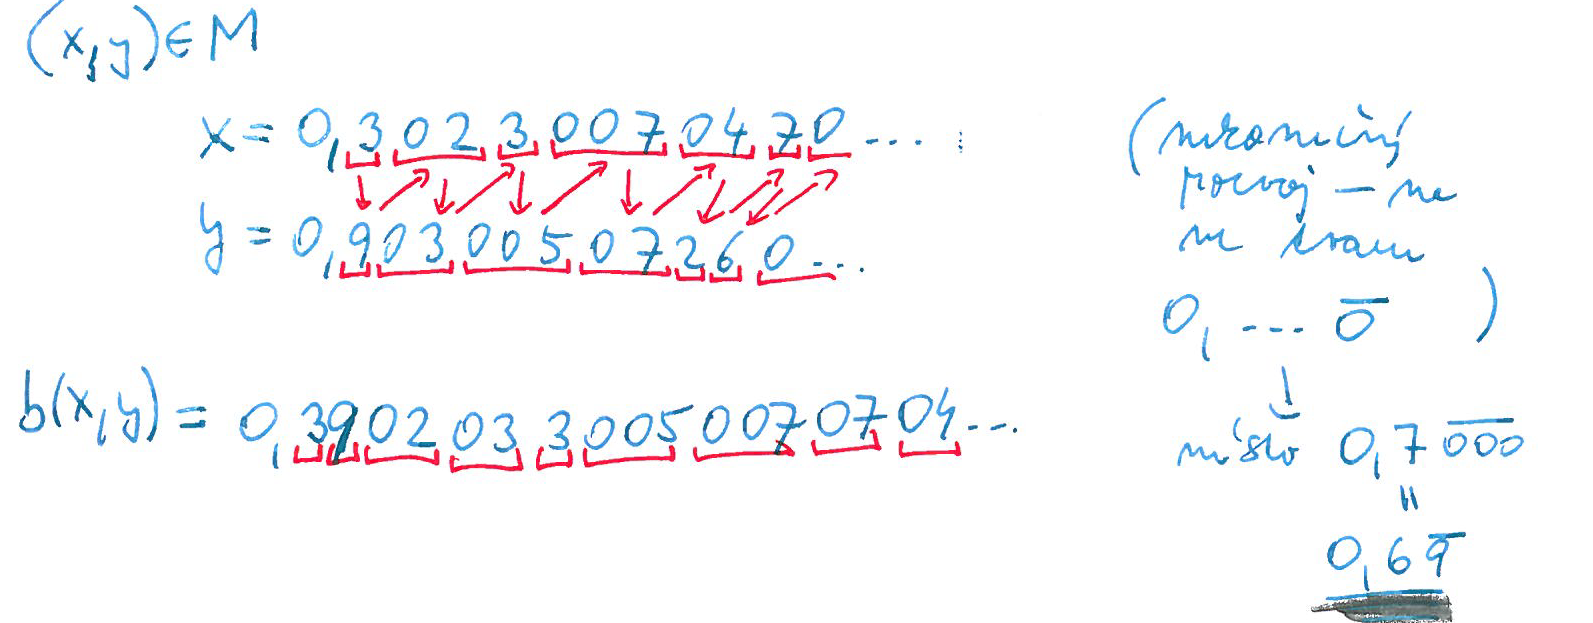 (x,y)∈M
x = 0,3 02 3 007 04 7 0 ....
y = 0,9 03 005 07 2 6 0...
b(x,y) = 0,3 9 02 03 3 005 007 07 04...
(nekonečný
rozvoj – ne
ve tvaru
0, ... 0̅ )
↓
místo 0,7 0̅0̅0̅
=
0,6 9̅